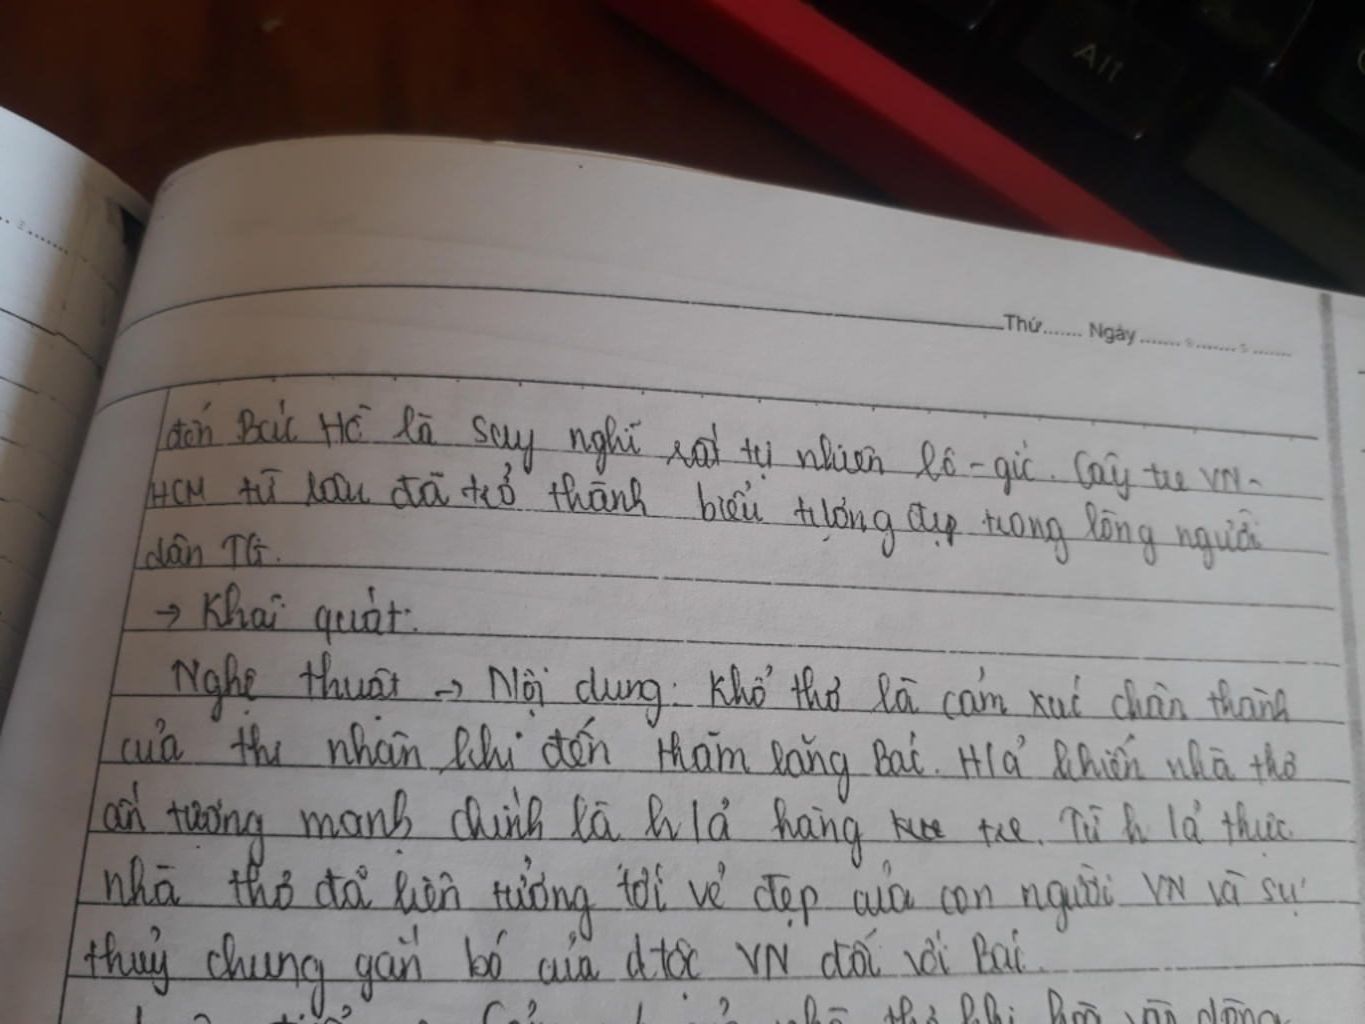 Alt
Thứ....... Ngày.......
đến Bác Hồ là suy nghĩ rất tự nhiên lô-gíc. Cây tre VN-
HCM từ lâu đã trở thành biểu tượng đẹp trong lòng người
dân TG.
→ Khái quát:
Nghệ thuật → Nội dung: Khổ thơ là cảm xúc chân thành
của thi nhân khi đến thăm lăng Bác. H/ả khiến nhà thơ
ấn tượng mạnh chính là h/ả hàng tre. Từ h/ả thực
nhà thơ đã liên tưởng tới vẻ đẹp của con người VN và sự
thuỷ chung gắn bó của dtộc VN đối với Bác.